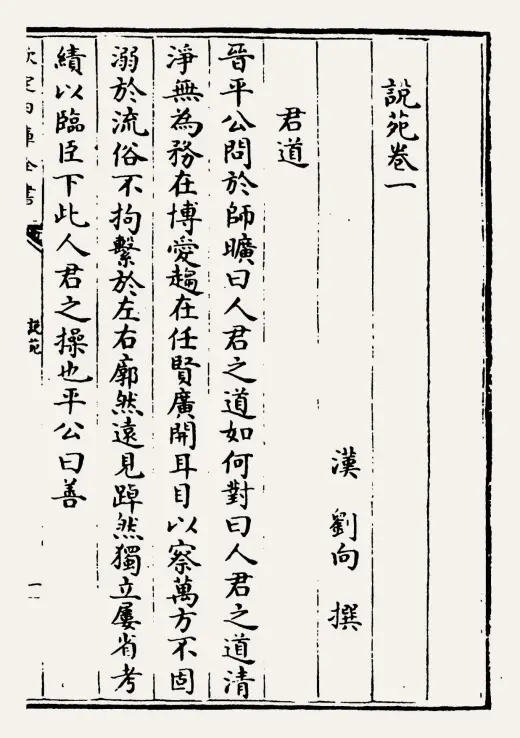 説苑卷一
漢 劉向 撰
君道
晉平公問於師曠曰人君之道如何對曰人君之道清
淨無為務在博愛趨在任賢廣開耳目以察萬方不固
溺於流俗不拘繫於左右廓然遠見踔然獨立屢省考
績以臨臣下此人君之操也平公曰善
欽定四庫全書
説苑
一